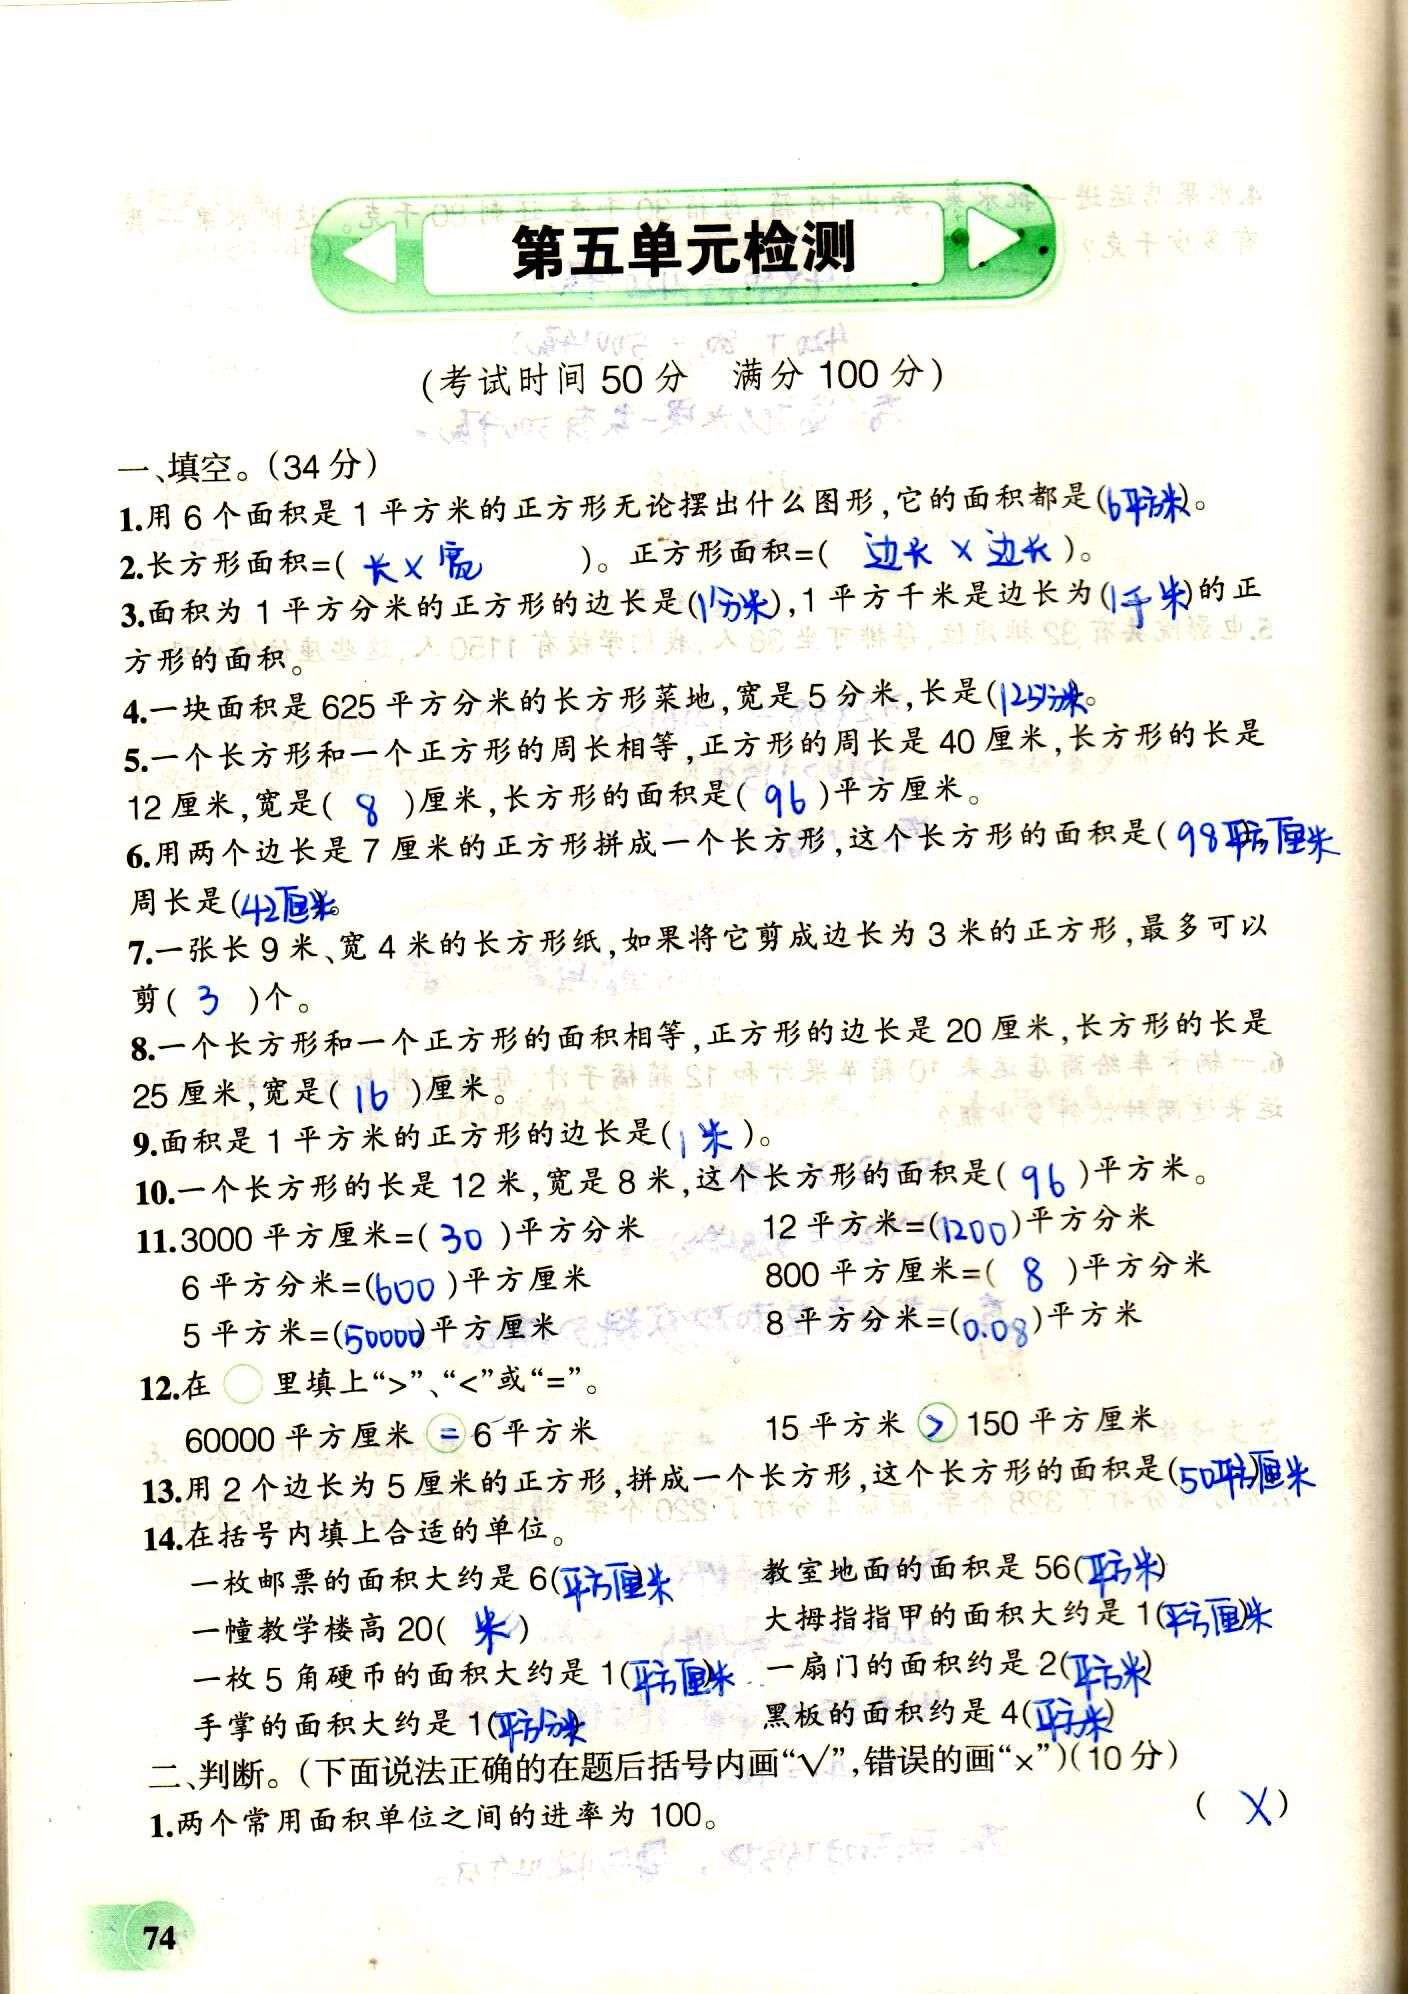 第五单元检测
(考试时间 50 分 满分 100 分)
一、填空。(34 分)
1.用 6 个面积是 1 平方米的正方形无论摆出什么图形,它的面积都是(6平方米)。
2.长方形面积=( 长×宽 )。正方形面积=( 边长×边长 )。
3.面积为 1 平方分米的正方形的边长是(1分米),1 平方千米是边长为(1千米)的正
方形的面积。
4.一块面积是 625 平方分米的长方形菜地,宽是 5 分米,长是(125分米)。
5.一个长方形和一个正方形的周长相等,正方形的周长是 40 厘米,长方形的长是
12 厘米,宽是( 8 )厘米,长方形的面积是( 96 )平方厘米。
6.用两个边长是 7 厘米的正方形拼成一个长方形,这个长方形的面积是( 98平方厘米
周长是(42厘米)。
7.一张长 9 米、宽 4 米的长方形纸,如果将它剪成边长为 3 米的正方形,最多可以
剪( 3 )个。
8.一个长方形和一个正方形的面积相等,正方形的边长是 20 厘米,长方形的长是
25 厘米,宽是( 16 )厘米。
9.面积是 1 平方米的正方形的边长是(1米)。
10.一个长方形的长是 12 米,宽是 8 米,这个长方形的面积是( 96 )平方米。
11.3000 平方厘米=( 30 )平方分米 12 平方米=(1200)平方分米
6 平方分米=(600)平方厘米 800 平方厘米=( 8 )平方分米
5 平方米=(50000)平方厘米 8 平方分米=(0.08)平方米
12.在 ○ 里填上“>”、“<”或“=”。
60000 平方厘米 = 6 平方米 15 平方米 > 150 平方厘米
13.用 2 个边长为 5 厘米的正方形,拼成一个长方形,这个长方形的面积是(50平方厘米
14.在括号内填上合适的单位。
一枚邮票的面积大约是 6(平方厘米) 教室地面的面积是 56(平方米)
一幢教学楼高 20( 米 ) 大拇指指甲的面积大约是 1(平方厘米)
一枚 5 角硬币的面积大约是 1(平方厘米) 一扇门的面积约是 2(平方米)
手掌的面积大约是 1(平方分米) 黑板的面积约是 4(平方米)
二、判断。(下面说法正确的在题后括号内画“√”,错误的画“×”)(10 分)
1.两个常用面积单位之间的进率为 100。 ( × )
74